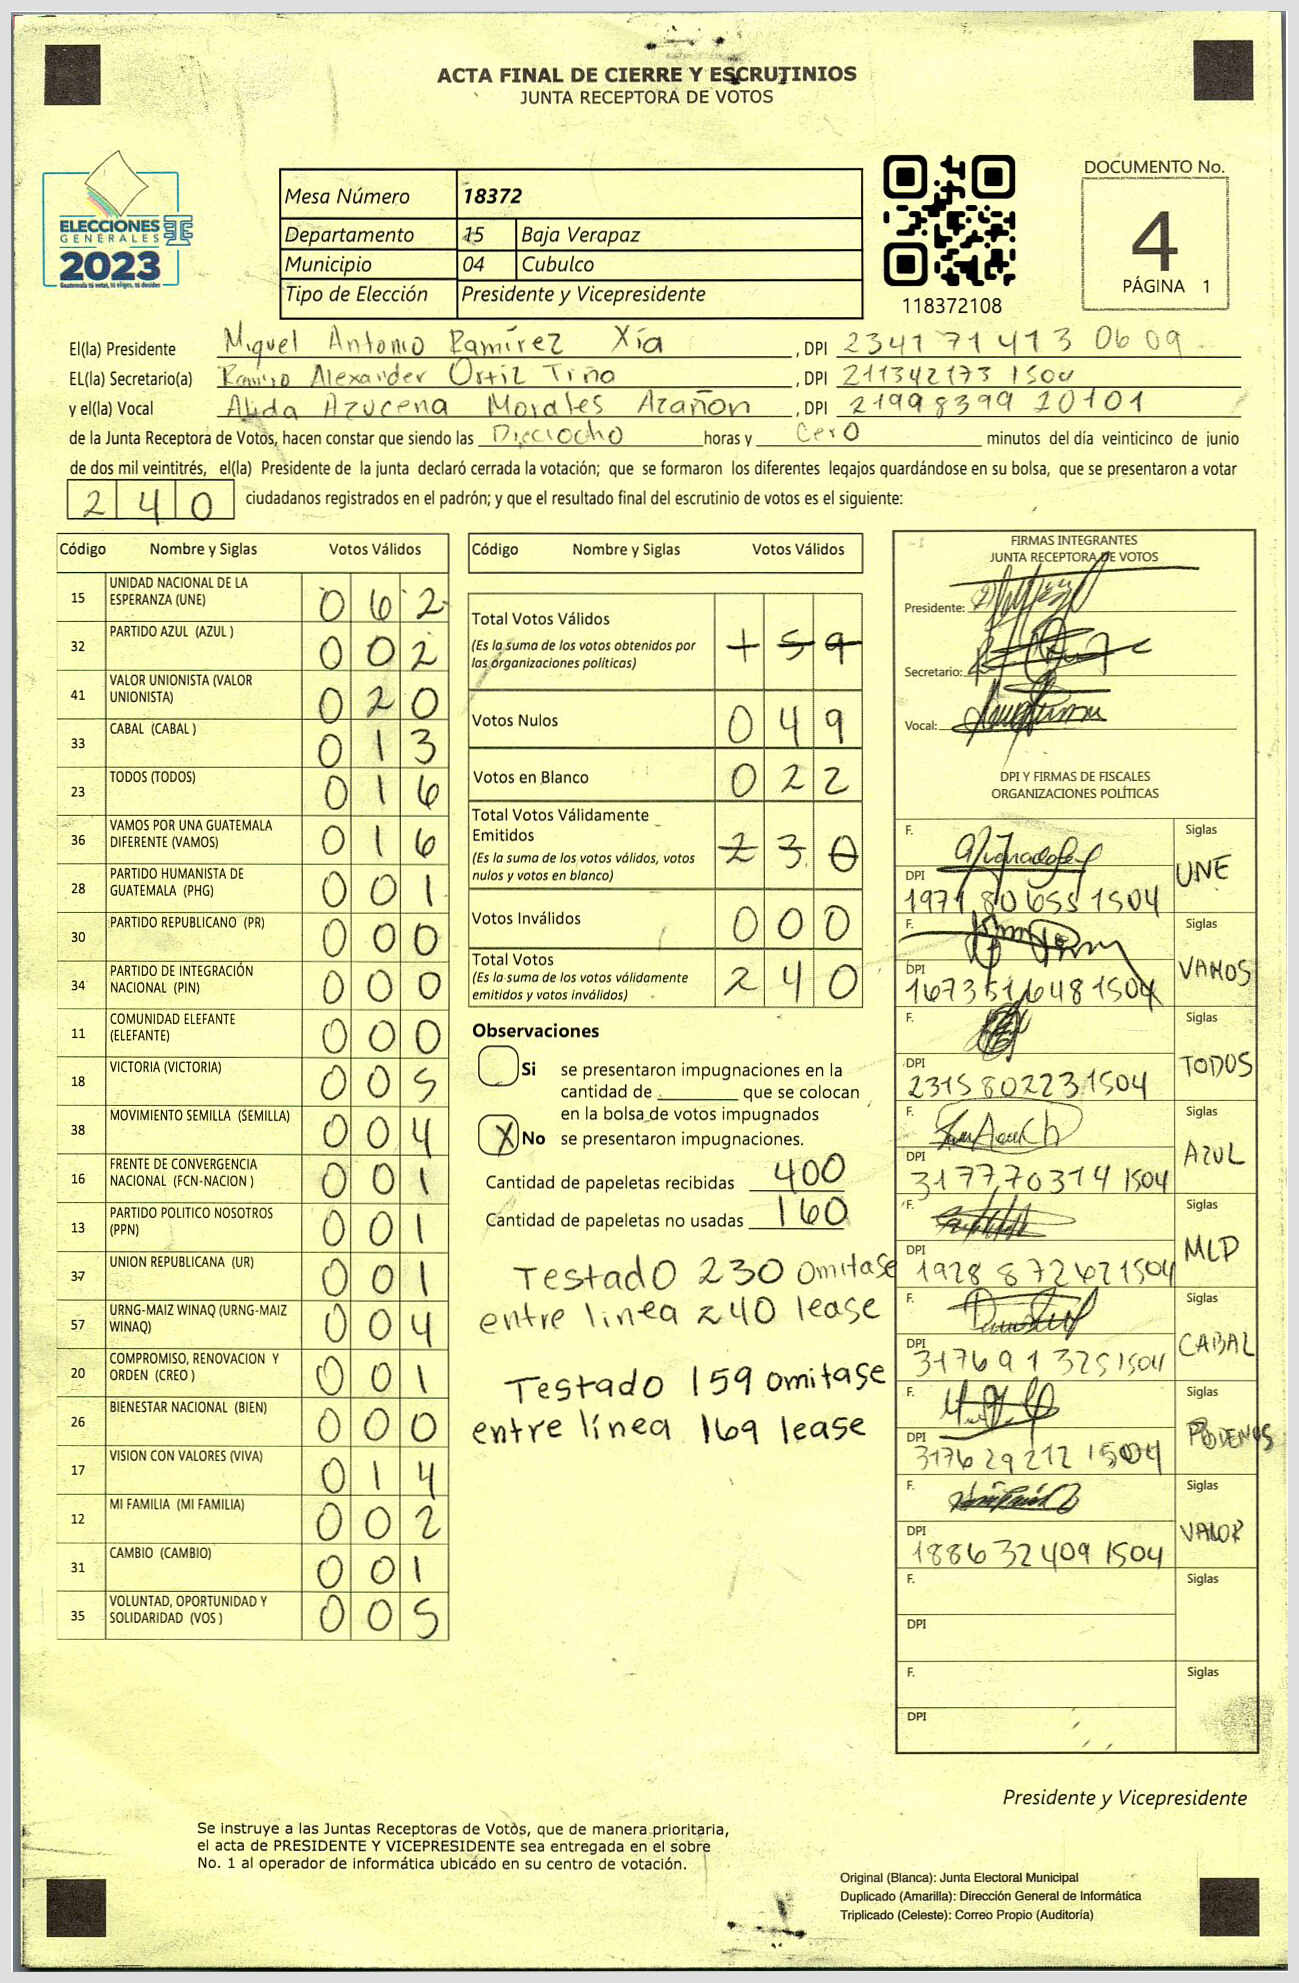 ACTA FINAL DE CIERRE Y ESCRUTINIOS
JUNTA RECEPTORA DE VOTOS
ELECCIONES
GENERALES
2023
Guatemala tú votas, tú eliges, tú decides
Mesa Número 18372
Departamento 15 Baja Verapaz
Municipio 04 Cubulco
Tipo de Elección Presidente y Vicepresidente
118372108
DOCUMENTO No.
4
PÁGINA 1
El(la) Presidente Miguel Antonio Ramírez Xía , DPI 2341 71 413 0609
EL(la) Secretario(a) Ramiro Alexander Ortiz Tino , DPI 211342173 1504
y el(la) Vocal Alida Azucena Morales Azañon , DPI 21998399 20101
de la Junta Receptora de Votos, hacen constar que siendo las Dieciocho horas y cero minutos del día veinticinco de junio
de dos mil veintitrés, el(la) Presidente de la junta declaró cerrada la votación; que se formaron los diferentes legajos guardándose en su bolsa, que se presentaron a votar
240 ciudadanos registrados en el padrón; y que el resultado final del escrutinio de votos es el siguiente:
Código Nombre y Siglas Votos Válidos
15 UNIDAD NACIONAL DE LA ESPERANZA (UNE) 062
32 PARTIDO AZUL (AZUL ) 002
41 VALOR UNIONISTA (VALOR UNIONISTA) 020
33 CABAL (CABAL ) 013
23 TODOS (TODOS) 016
36 VAMOS POR UNA GUATEMALA DIFERENTE (VAMOS) 016
28 PARTIDO HUMANISTA DE GUATEMALA (PHG) 001
30 PARTIDO REPUBLICANO (PR) 000
34 PARTIDO DE INTEGRACIÓN NACIONAL (PIN) 000
11 COMUNIDAD ELEFANTE (ELEFANTE) 000
18 VICTORIA (VICTORIA) 005
38 MOVIMIENTO SEMILLA (SEMILLA) 004
16 FRENTE DE CONVERGENCIA NACIONAL (FCN-NACION ) 001
13 PARTIDO POLITICO NOSOTROS (PPN) 001
37 UNION REPUBLICANA (UR) 001
57 URNG-MAIZ WINAQ (URNG-MAIZ WINAQ) 004
20 COMPROMISO, RENOVACION Y ORDEN (CREO ) 001
26 BIENESTAR NACIONAL (BIEN) 000
17 VISION CON VALORES (VIVA) 014
12 MI FAMILIA (MI FAMILIA) 002
31 CAMBIO (CAMBIO) 001
35 VOLUNTAD, OPORTUNIDAD Y SOLIDARIDAD (VOS ) 005
Código Nombre y Siglas Votos Válidos
Total Votos Válidos 159
(Es la suma de los votos obtenidos por
las organizaciones políticas)
Votos Nulos 049
Votos en Blanco 022
Total Votos Válidamente
Emitidos 230
(Es la suma de los votos válidos, votos
nulos y votos en blanco)
Votos Inválidos 000
Total Votos 240
(Es la suma de los votos válidamente
emitidos y votos inválidos)
Observaciones
Si se presentaron impugnaciones en la
cantidad de ________ que se colocan
en la bolsa de votos impugnados
X No se presentaron impugnaciones.
Cantidad de papeletas recibidas 400
Cantidad de papeletas no usadas 160
Testado 230 omitase
entre linea 240 lease
Testado 159 omitase
entre línea 169 lease
FIRMAS INTEGRANTES
JUNTA RECEPTORA DE VOTOS
Presidente:
Secretario:
Vocal:
DPI Y FIRMAS DE FISCALES
ORGANIZACIONES POLÍTICAS
F. Siglas
DPI 1971 80655 1504 UNE
F. Siglas
DPI 1673516481504 VAMOS
F. Siglas
DPI 2315802231504 TODOS
F. Siglas
DPI 317770314 1504 AZUL
F. Siglas
DPI 1928 872621504 MLP
F. Siglas
DPI 317691325 1504 CABAL
F. Siglas
DPI 317629212 1504 PODEMOS
F. Siglas
DPI 188632409 1504 VALOR
F. Siglas
DPI
F. Siglas
DPI
Presidente y Vicepresidente
Se instruye a las Juntas Receptoras de Votos, que de manera prioritaria,
el acta de PRESIDENTE Y VICEPRESIDENTE sea entregada en el sobre
No. 1 al operador de informática ubicado en su centro de votación.
Original (Blanca): Junta Electoral Municipal
Duplicado (Amarilla): Dirección General de Informática
Triplicado (Celeste): Correo Propio (Auditoría)